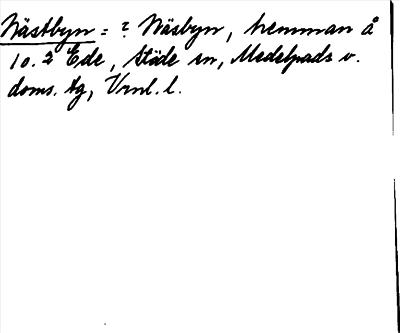 Nästbyn = ? Näsbyn, hemman å
10. 2 Ede, Stöde sn, Medelpads v.
doms. tg, Vrnl. l.